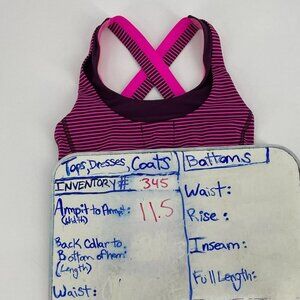 Tops, Dresses, Coats
INVENTORY # 345
Armpit to Armpit: 11.5
(Width)
Back Collar to
Bottom of hem
(Length)
Waist:
Bottoms
Waist:
Rise:
Inseam:
Full Length: